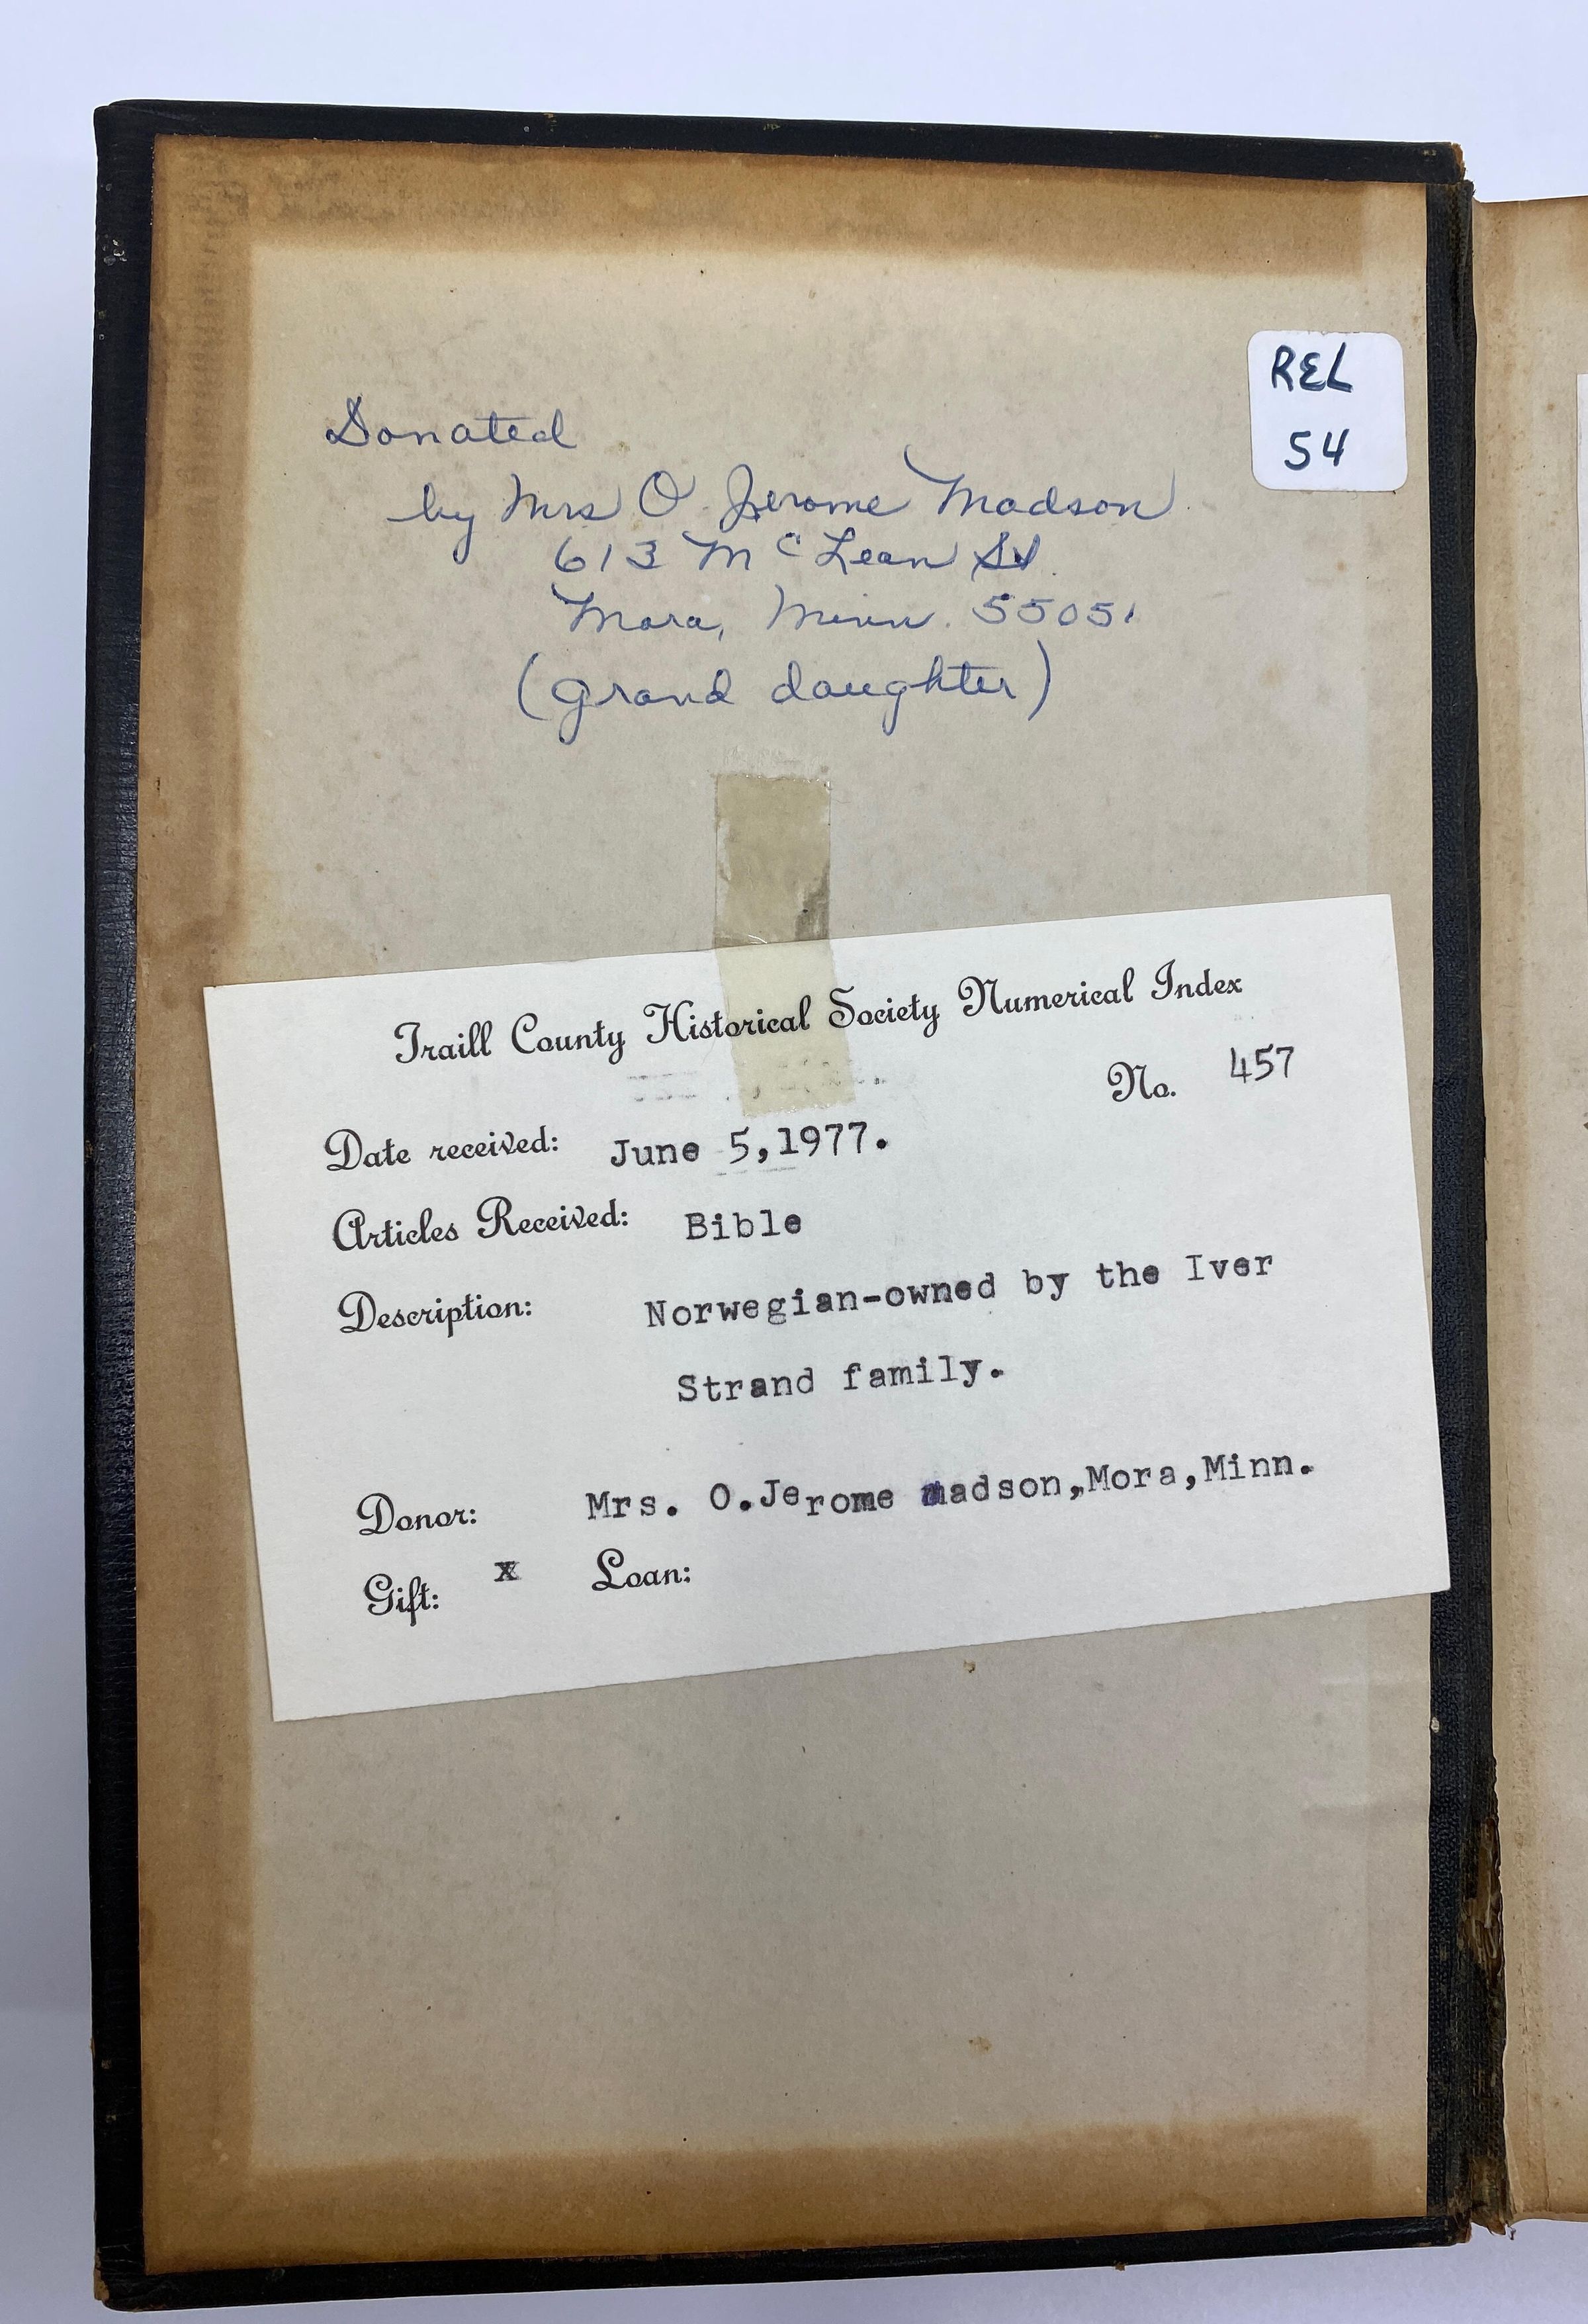 REL
54
Donated
by Mrs O. Jerome Madson
613 McLean St.
Mora, Minn. 55051
(grand daughter)
Traill County Historical Society Numerical Index
No. 457
Date received: June 5,1977.
Articles Received: Bible
Description: Norwegian-owned by the Iver
Strand family.
Donor: Mrs. O.Jerome madson,Mora,Minn.
Gift: x Loan: